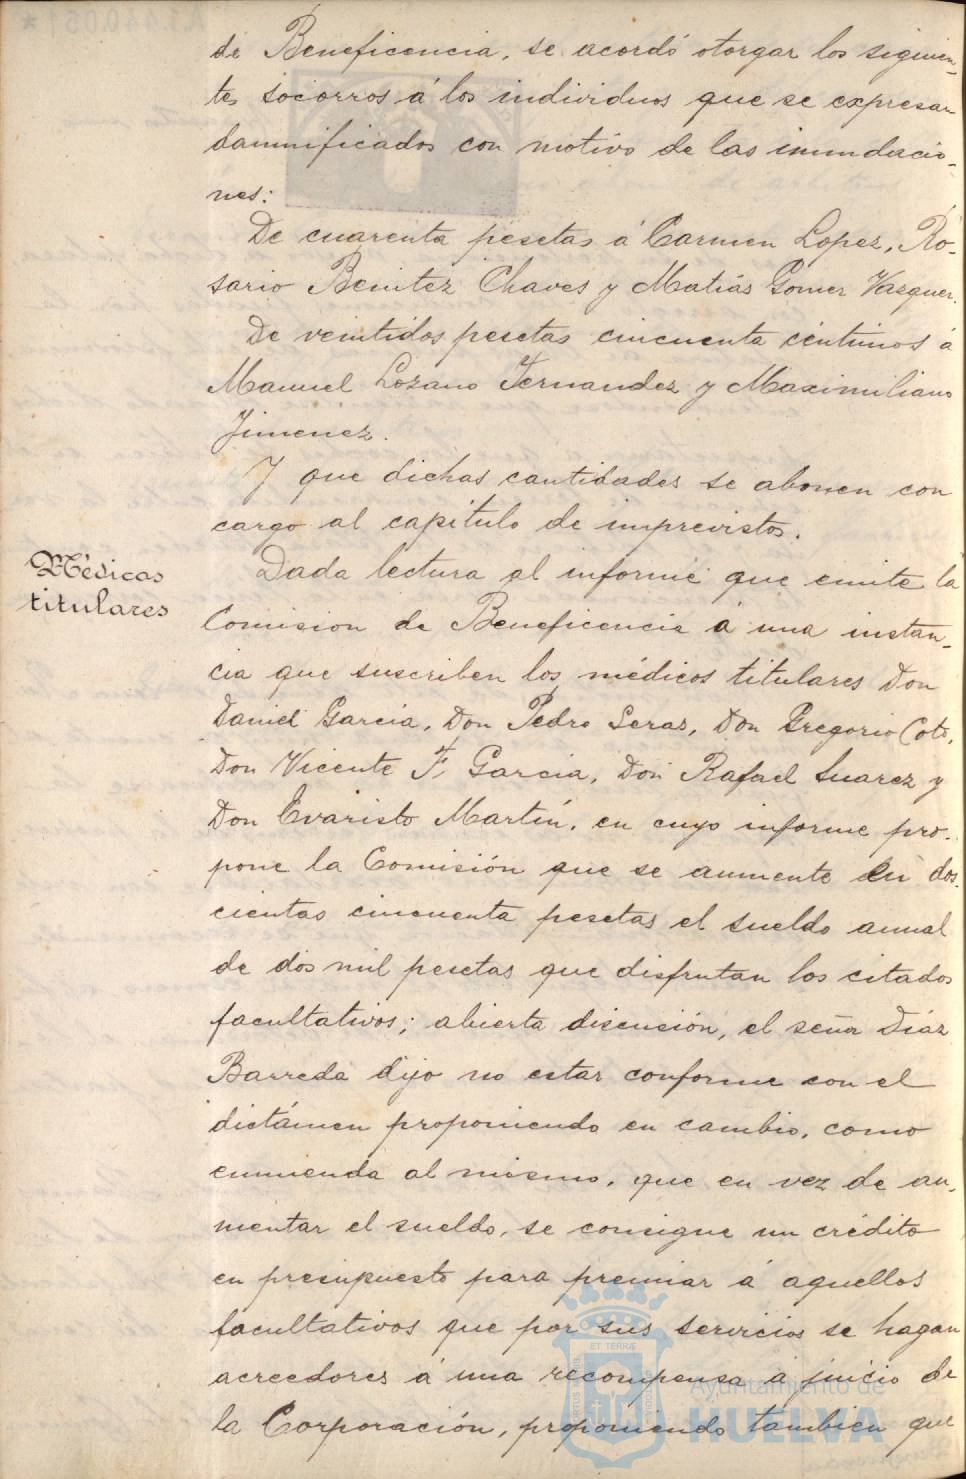 de Beneficencia, se acordó otorgar los siguien-
tes socorros á los individuos que se expresan
damnificados con motivo de las inundacio-
nes:
De cuarenta pesetas á Carmen Lopez, Ro-
sario Benitez Chaves y Matiás Gomez Vazquez.
De veintidos pesetas cincuenta céntimos á
Manuel Lozano Fernandez y Maximiliano
Jimenez.
Y que dichas cantidades se abonen con
cargo al capítulo de imprevistos.
Médicos
titulares
Dada lectura al informe que emite la
Comision de Beneficencia á una instan-
cia que suscriben los médicos titulares Don
Daniel García, Don Pedro Seras, Don Gregorio Coto,
Don Vicente F. García, Don Rafael Suarez y
Don Evaristo Martín, en cuyo informe pro-
pone la Comisión que se aumente en dos-
cientas cincuenta pesetas el sueldo anual
de dos mil pesetas que disfrutan los citados
facultativos; abierta discusión, el señor Díaz
Barreda dijo no estar conforme con el
dictámen proponiendo en cambio, como
enmienda al mismo, que en vez de au-
mentar el sueldo, se consigne un crédito
en presupuesto para premiar á aquellos
facultativos que por sus servicios se hagan
acreedores á una recompensa á juicio de
la Corporación, proponiendo tambien que
ET TERRÆ
Ayuntamiento de
HUELVA